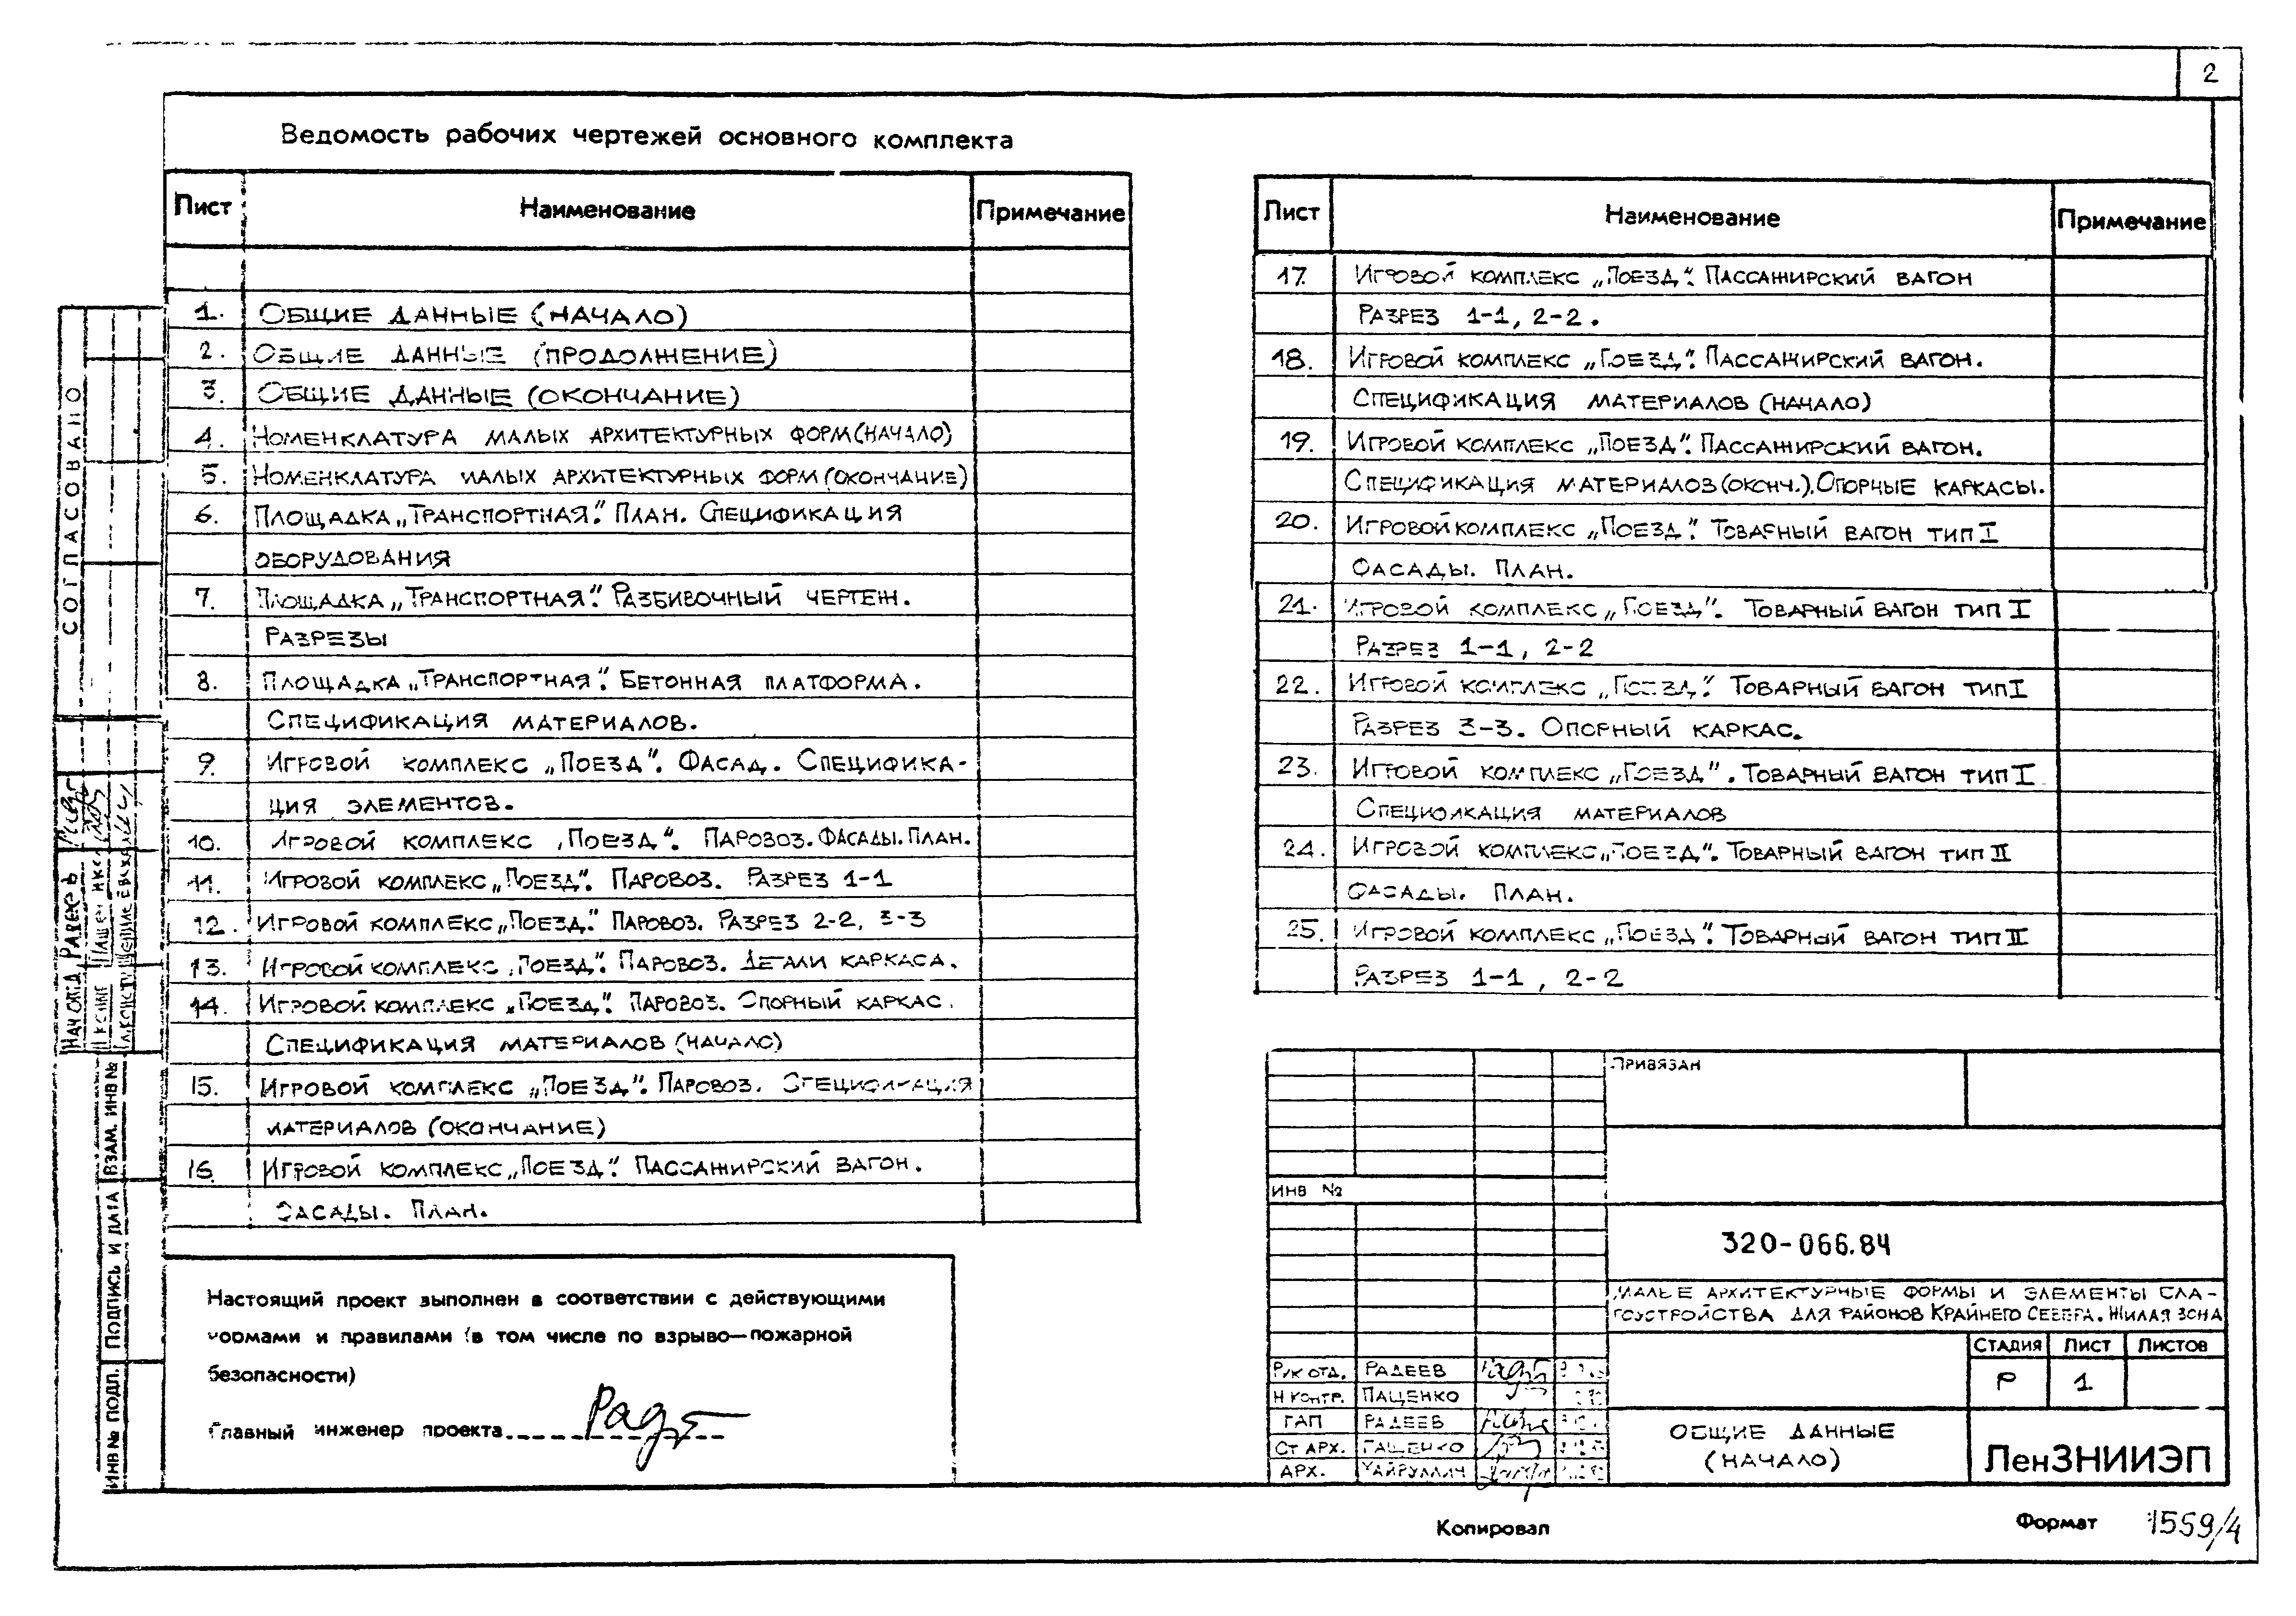 2
Ведомость рабочих чертежей основного комплекта
Лист Наименование Примечание
1. Общие данные (начало)
2. Общие данные (продолжение)
3. Общие данные (окончание)
4. Номенклатура малых архитектурных форм (начало)
5. Номенклатура малых архитектурных форм (окончание)
6. Площадка „Транспортная“. План. Спецификация
оборудования
7. Площадка „Транспортная“. Разбивочный чертеж.
Разрезы
8. Площадка „Транспортная“. Бетонная платформа.
Спецификация материалов.
9. Игровой комплекс „Поезд“. Фасад. Специфика-
ция элементов.
10. Игровой комплекс „Поезд“. Паровоз. Фасады. План.
11. Игровой комплекс „Поезд“. Паровоз. Разрез 1-1
12. Игровой комплекс „Поезд“. Паровоз. Разрез 2-2, 3-3
13. Игровой комплекс „Поезд“. Паровоз. Детали каркаса.
14. Игровой комплекс „Поезд“. Паровоз. Опорный каркас.
Спецификация материалов (начало)
15. Игровой комплекс „Поезд“. Паровоз. Спецификация
материалов (окончание)
16. Игровой комплекс „Поезд“. Пассажирский вагон.
Фасады. План.
Лист Наименование Примечание
17. Игровой комплекс „Поезд“. Пассажирский вагон
Разрез 1-1, 2-2.
18. Игровой комплекс „Поезд“. Пассажирский вагон.
Спецификация материалов (начало)
19. Игровой комплекс „Поезд“. Пассажирский вагон.
Спецификация материалов (оконч.). Опорные каркасы.
20. Игровой комплекс „Поезд“. Товарный вагон тип I
Фасады. План.
21. Игровой комплекс „Поезд“. Товарный вагон тип I
Разрез 1-1, 2-2
22. Игровой комплекс „Поезд“. Товарный вагон тип I
Разрез 3-3. Опорный каркас.
23. Игровой комплекс „Поезд“. Товарный вагон тип I
Спецификация материалов
24. Игровой комплекс „Поезд“. Товарный вагон тип II
Фасады. План.
25. Игровой комплекс „Поезд“. Товарный вагон тип II
Разрез 1-1, 2-2
Настоящий проект выполнен в соответствии с действующими
нормами и правилами (в том числе по взрыво—пожарной
безопасности)
Главный инженер проекта
Привязан
Инв №
320-066.84
Малые архитектурные формы и элементы бла-
гоустройства для районов Крайнего Севера. Жилая зона
Стадия Лист Листов
Р 1
Рук отд. Радеев
Н контр. Пащенко
ГАП Радеев
Ст арх. Пащенко
Арх. Хайруллин
Общие данные
(начало)
ЛенЗНИИЭП
Копировал
Формат 1559/4
СОГЛАСОВАНО
Нач отд Радеев
Взам. инв №
Подпись и дата
Инв № подл.